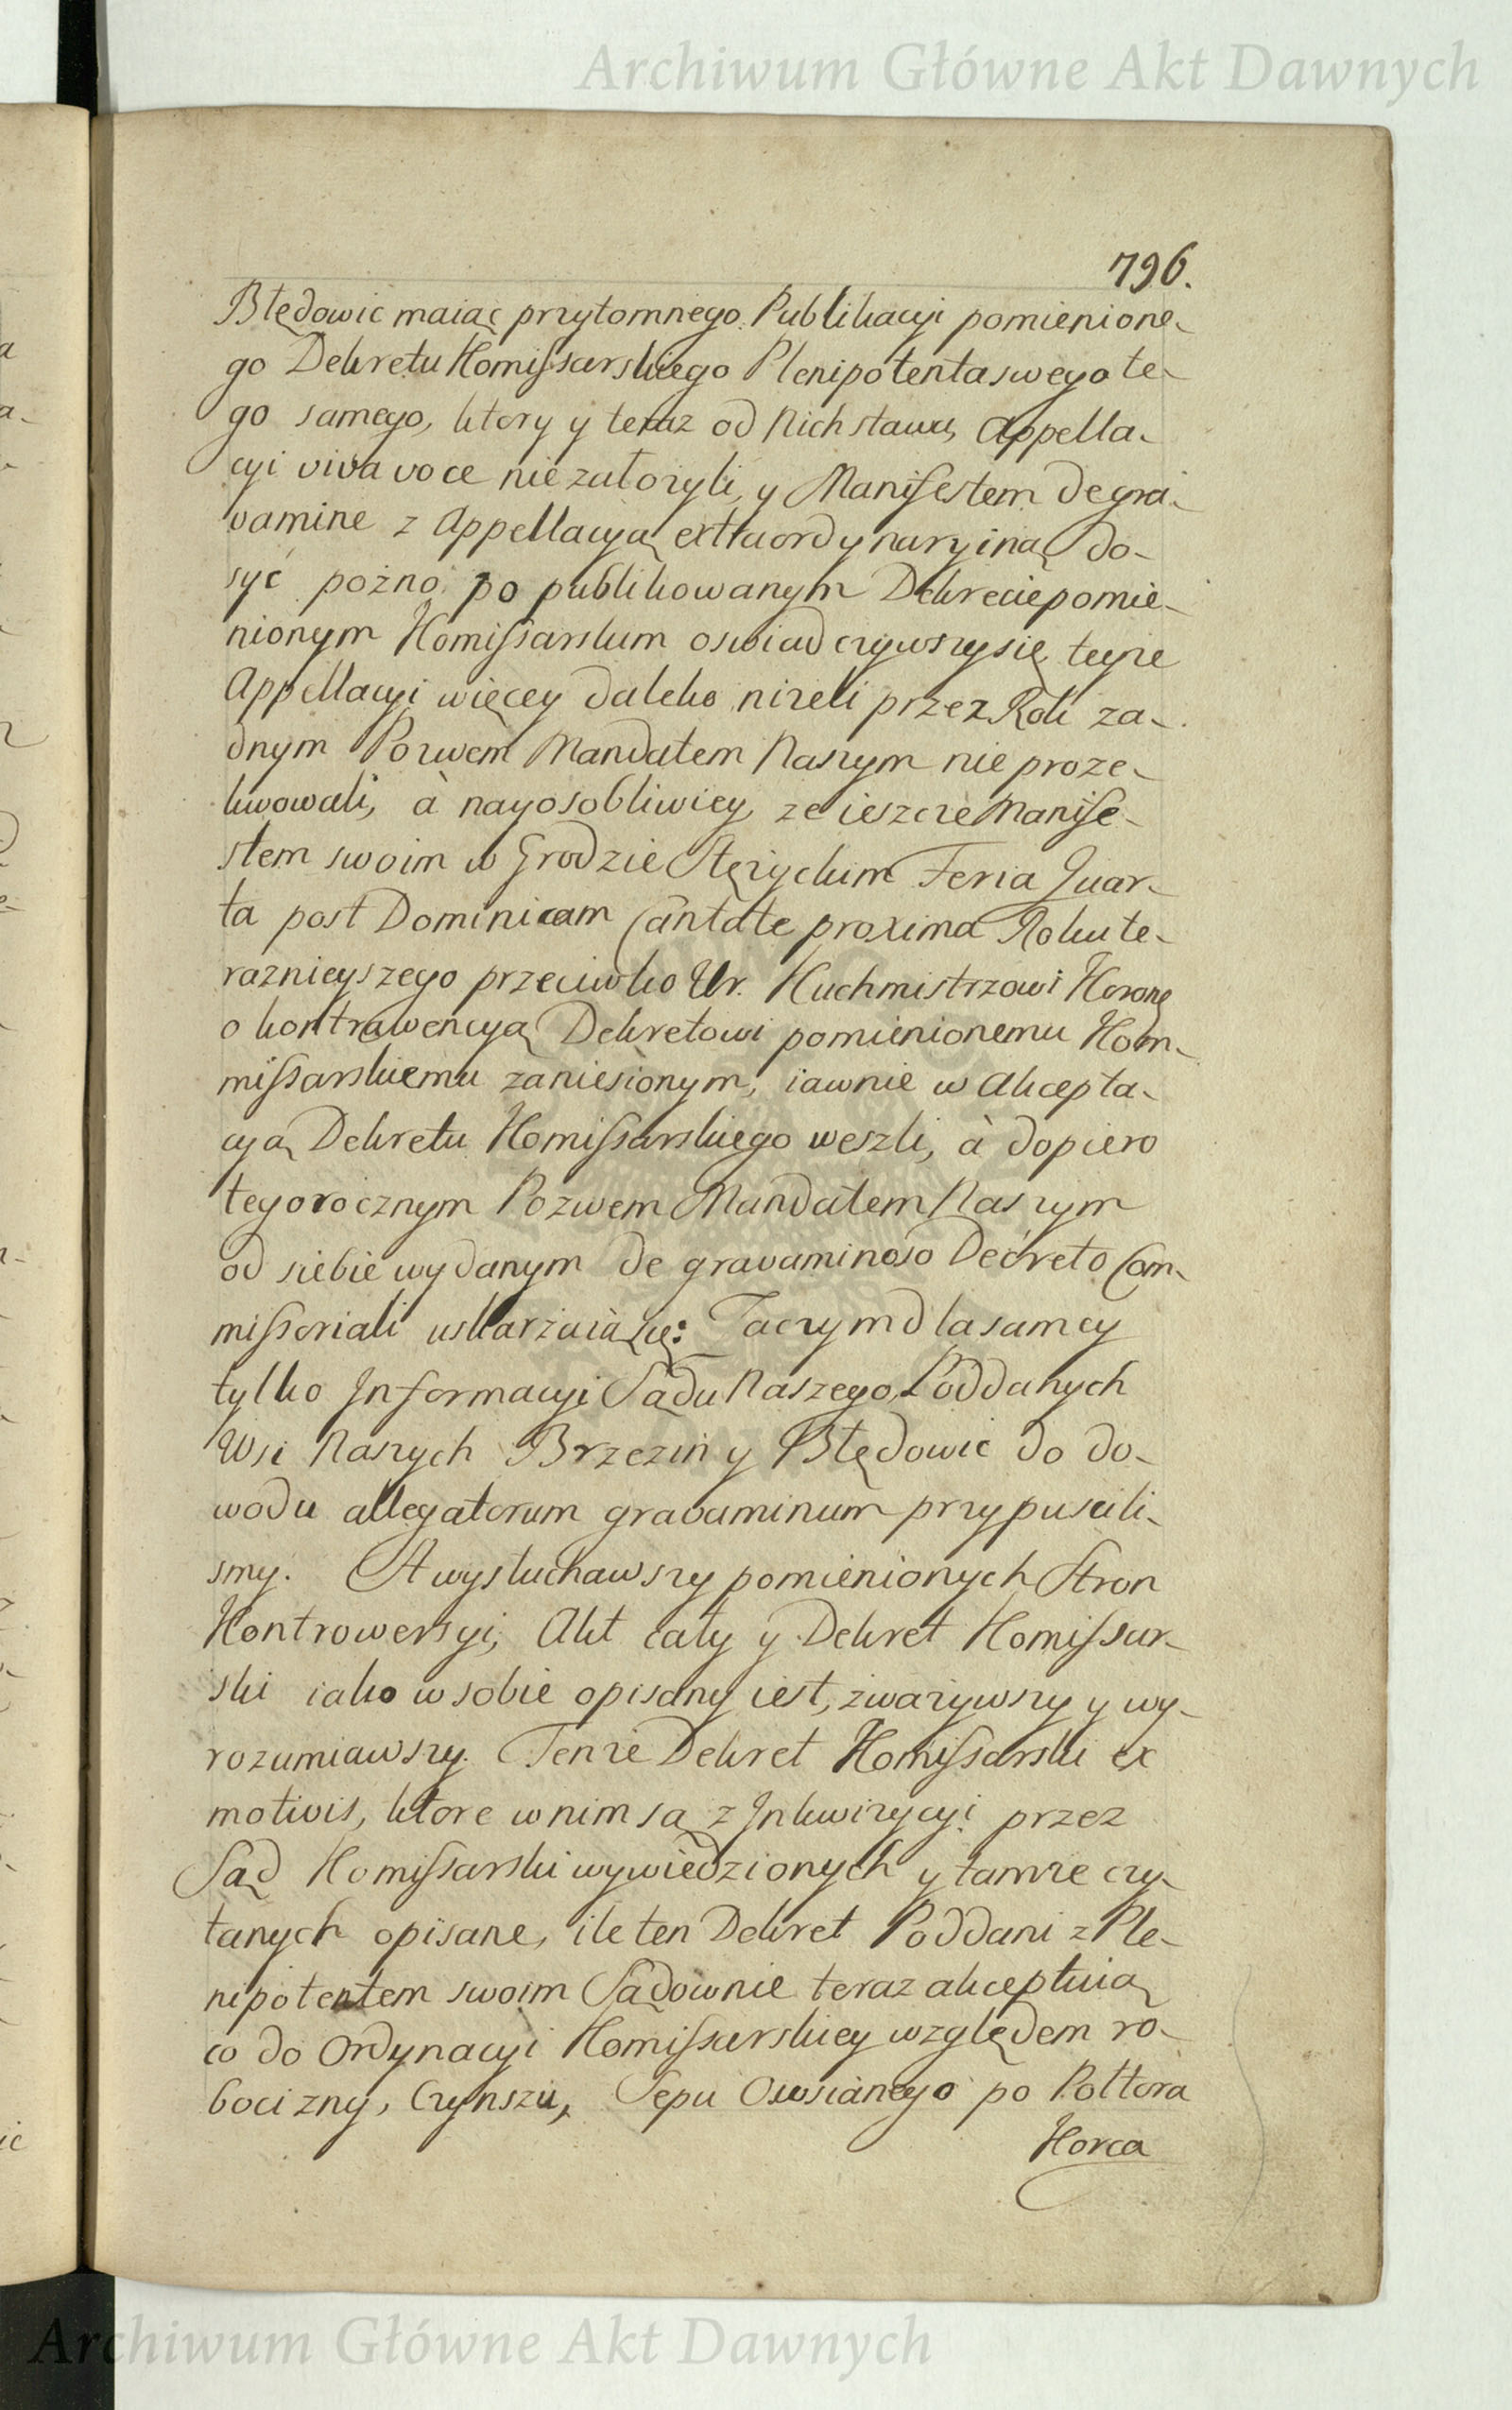 Archiwum Główne Akt Dawnych
796.
Błędowic maiąc przytomnego Publikacyi pomienione-
go Dekretu Komissarskiego Plenipotenta swego te-
go samego, ktory y teraz od Nich stawa, Appella-
cyi viva voce nie założyli, y Manifestem de gra-
vamine z Appellacyą extraordynaryiną do-
syć pożno po publikowanym Dekrecie pomie-
nionym Komissarskim oswiadczywszy się, teyże
Appellacyi więcey daleko niżeli przez Rok ża-
dnym Pozwem Mandatem Naszym nie proze-
kwowali, à nayosobliwiey, że ieszcze Manife-
stem swoim w Grodzie Stężyckim Feria Quar-
ta post Dominicam Cantate proxima Roku te-
raznieyszego przeciwko Ur. Kuchmistrzowi Koronę
o kontrawencyą Dekretowi pomienionemu Kom-
missarskiemu zaniesionym, iawnie w Akcepta-
cyą Dekretu Komissarskiego weszli, à dopiero
tegorocznym Pozwem Mandatem Naszym
od siebie wydanym de gravaminoso Decreto Com-
missoriali uskarżaią się: Zaczym dla samey
tylko Informacyi Sądu Naszego, Poddanych
Wsi Naszych Brzezin y Błędowic do do-
wodu allegatorum gravaminum przypuscili-
smy. A wysłuchawszy pomienionych Stron
Kontrowersyi, Akt cały y Dekret Komissar-
ski iako w sobie opisany iest, zważywszy y wy-
rozumiawszy. Tenże Dekret Komissarski ex
motivis, ktore w nim są z Inkwizycyi przez
Sąd Komissarski wywiedzionych y tamże czy-
tanych opisane, ile ten Dekret Poddani z Ple-
nipotentem swoim Sądownie teraz akceptuią
co do Ordynacyi Komissarskiey względem ro-
bocizny, Czynszu, Sepu Owsianego po Połtora
Korca
Archiwum Główne Akt Dawnych